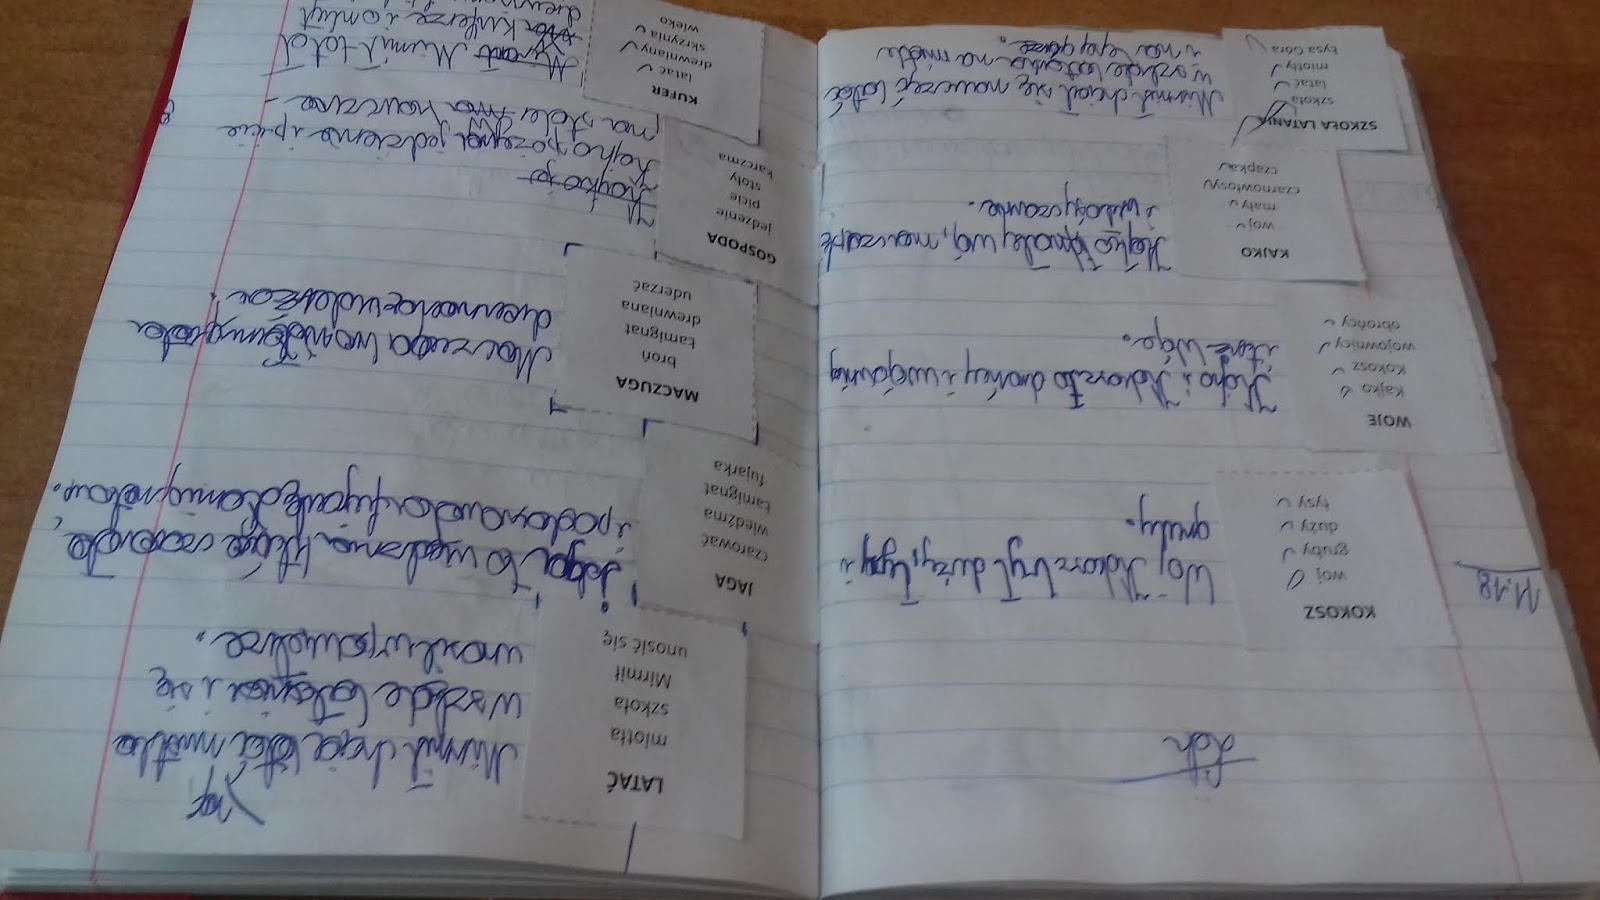 KOKOSZ
woj
gruby
duży
łysy
Wój Kokosz był duży, łysy i
gruby.
WOJE
Kajko
Kokosz
wojownicy
obrońcy
Kajo i Kokosz to
KAJKO
woj
mały
czarnowłosy
czapka
Kajko mały wój, ma czapkę
SZKOŁA LATANIA
szkoła
latać
miotły
Łysa Góra
Mirmił chciał się nauczyć latać
w szkole latania na miotle
i na łysej górze.
LATAĆ
miotła
szkoła
Mirmił
unosić się
Mirmił chciał latać miotła
w szkole latania i się
unosił w powietrze.
JAGA
czarować
wiedźma
Łamignat
fujarka
Jaga to wiedźma, która czaruje,
i podarowała fujarkę Łamignatow.
MACZUGA
broń
Łamignat
drewniana
uderzać
Maczuga Łamignata
drewniana
GOSPODA
jedzenie
picie
stoły
karczma
Kajko po
Kajko jedzienie i picie
na stole na
KUFER
latać
drewniany
skrzynia
wieko
Mirmił latał
kuferze i